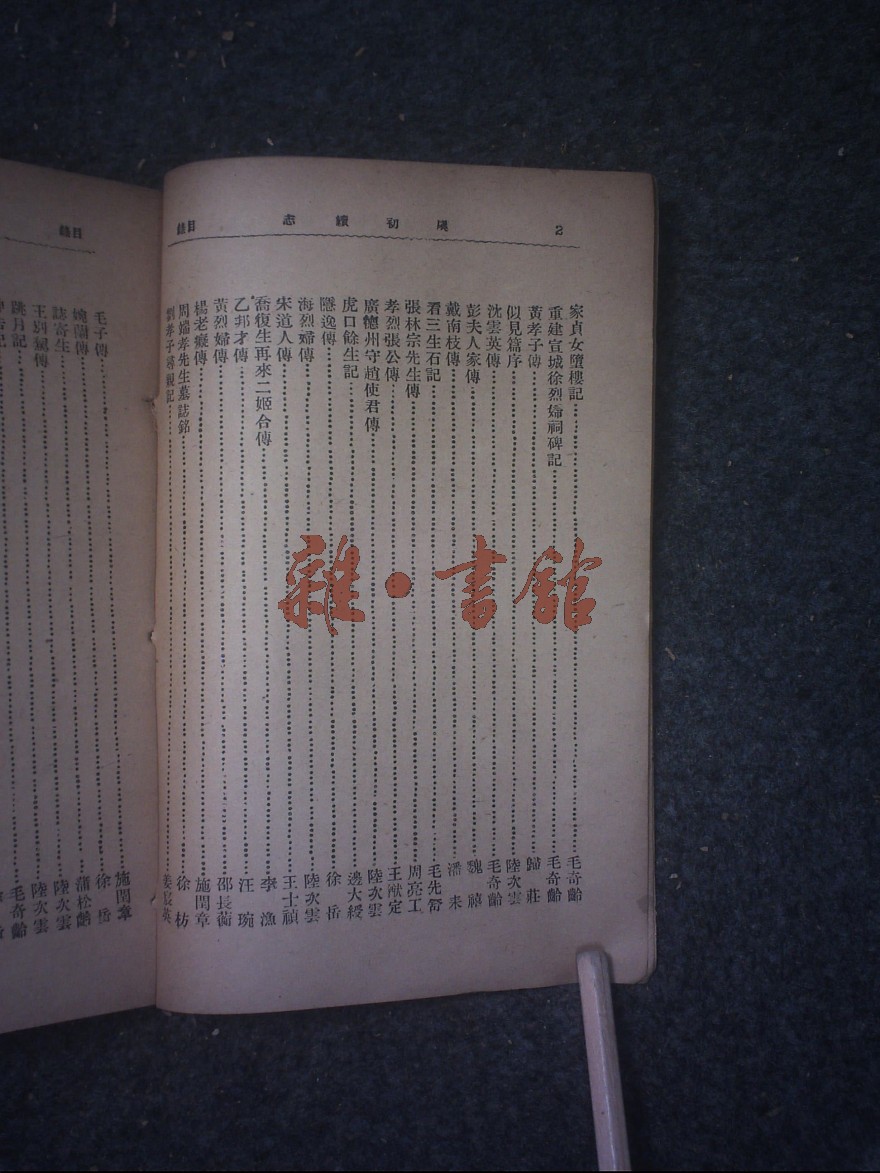 2 虞初續志 目錄
家貞女墮樓記……毛奇齡
重建宣城徐烈婦祠碑記……毛奇齡
黃孝子傳……歸莊
似見篇序……陸次雲
沈雲英傳……毛奇齡
彭夫人家傳……魏禧
戴南枝傳……潘耒
看三生石記……毛先舒
張林宗先生傳……周亮工
孝烈張公傳……王猷定
廣德州守趙使君傳……陸次雲
虎口餘生記……邊大綬
隱逸傳……徐岳
海烈婦傳……陸次雲
宋道人傳……王士禎
喬復生再來二姬合傳……李漁
乙邦才傳……汪琬
黃烈婦傳……邵長蘅
楊老癡傳……施閏章
周端孝先生墓誌銘……徐枋
劉孝子尋親記……姜宸英
目錄
毛子傳……施閏章
蘭傳……徐岳
誌寄生……蒲松齡
王別駕傳……陸次雲
跳月記……陸次雲
毛奇齡
雜·書館